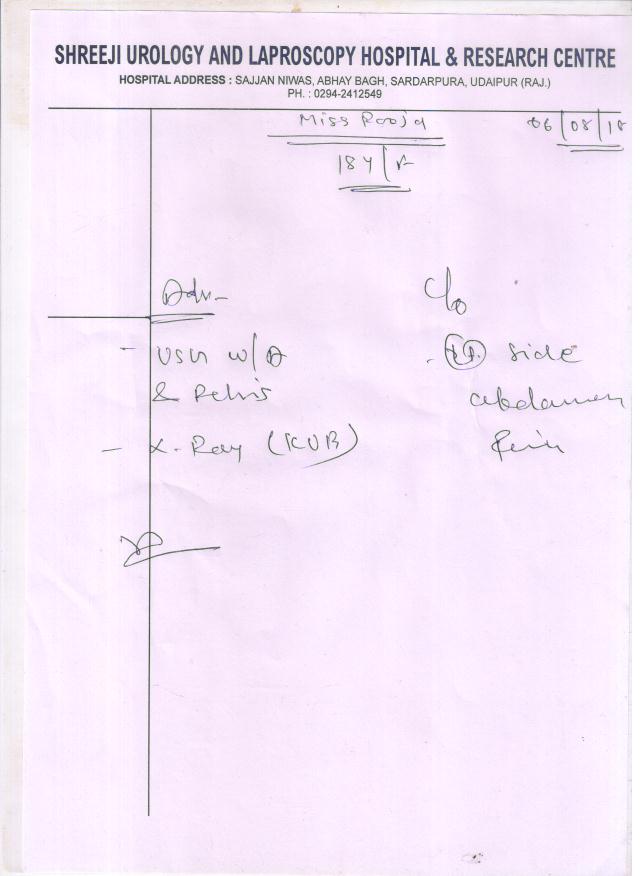 SHREEJI UROLOGY AND LAPROSCOPY HOSPITAL & RESEARCH CENTRE
HOSPITAL ADDRESS : SAJJAN NIWAS, ABHAY BAGH, SARDARPURA, UDAIPUR (RAJ.)
PH. : 0294-2412549
Miss Pooja
06/08/18
18Y/F
Adv-
- USG W/A
& Pelvis
- X-Ray (KUB)
C/o
- Rt. side
abdomen
Pain